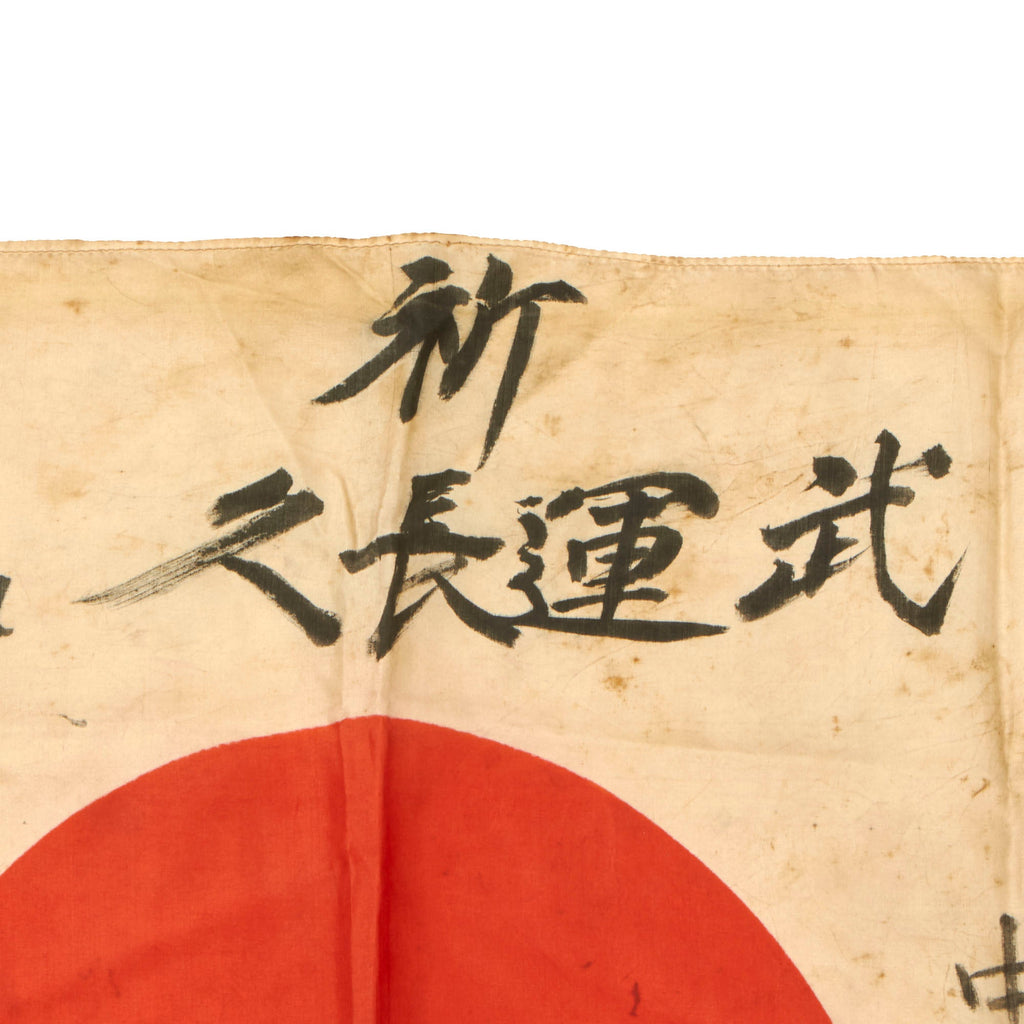 祈
武運長久
中